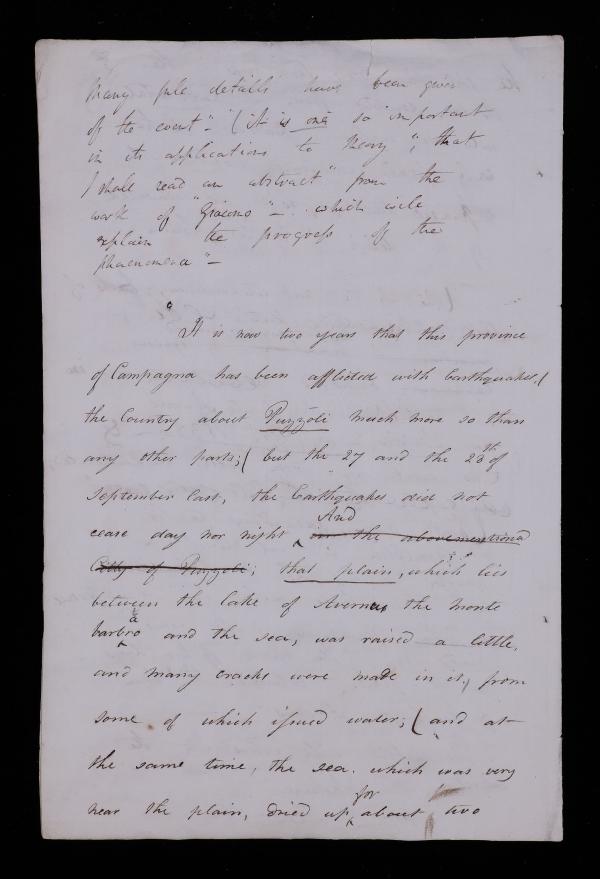 Many full details have been given
of the event" - (it is one so important
in its applications to Theory", that
I shall read an abstract" from the
work of "Giacomo" - which will
explain the progress of the
phaenomena" -
It is now two years that this province
of Campagna has been afflicted with Earthquakes, (
the Country about Puzzoli much more so than
any other parts; ( but the 27 and the 28th of
September last, the Earthquakes did not
And
cease day nor night in the abovementioned
City of Puzzoli; that plain, which lies
between the lake of Avernus the monte
a
barbro and the sea, was raised a little,
and many cracks were made in it, from
some of which issued water; ( and at
the same time, the sea. which was very
for
near the plain, dried up about two